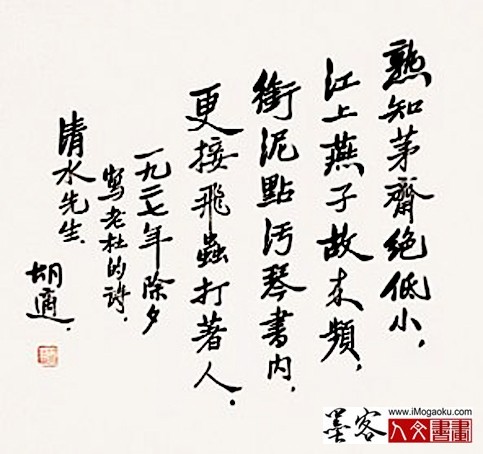 熟知茅齋絕低小，
江上燕子故来頻，
銜泥點污琴書內，
更接飛蟲打著人．
一九二七年除夕
寫老杜的詩，
清水先生．
胡適．
墨客
www.iMogaoku.com
人文書畫